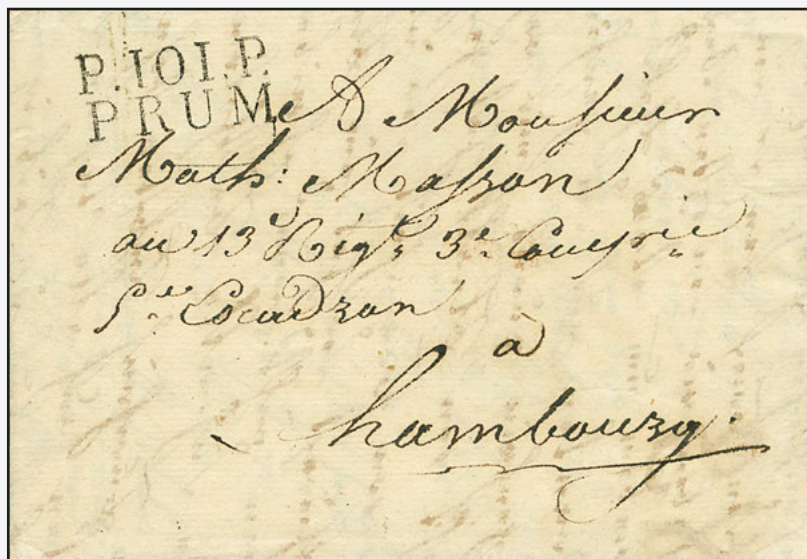 P.101.P.
PRUM
A Monsieur
Math: Masson
au 13e Rigt 3e Compnie
5e Escadron
à
hambourg.